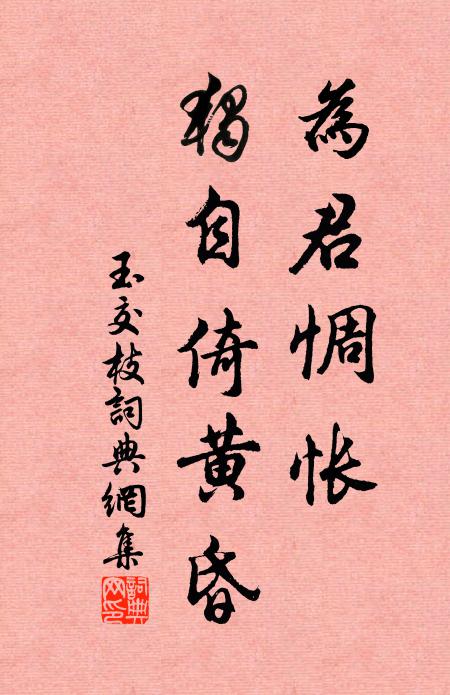 為君惆怅
獨自倚黄昏
玉交枝詞典網集
詞典网印